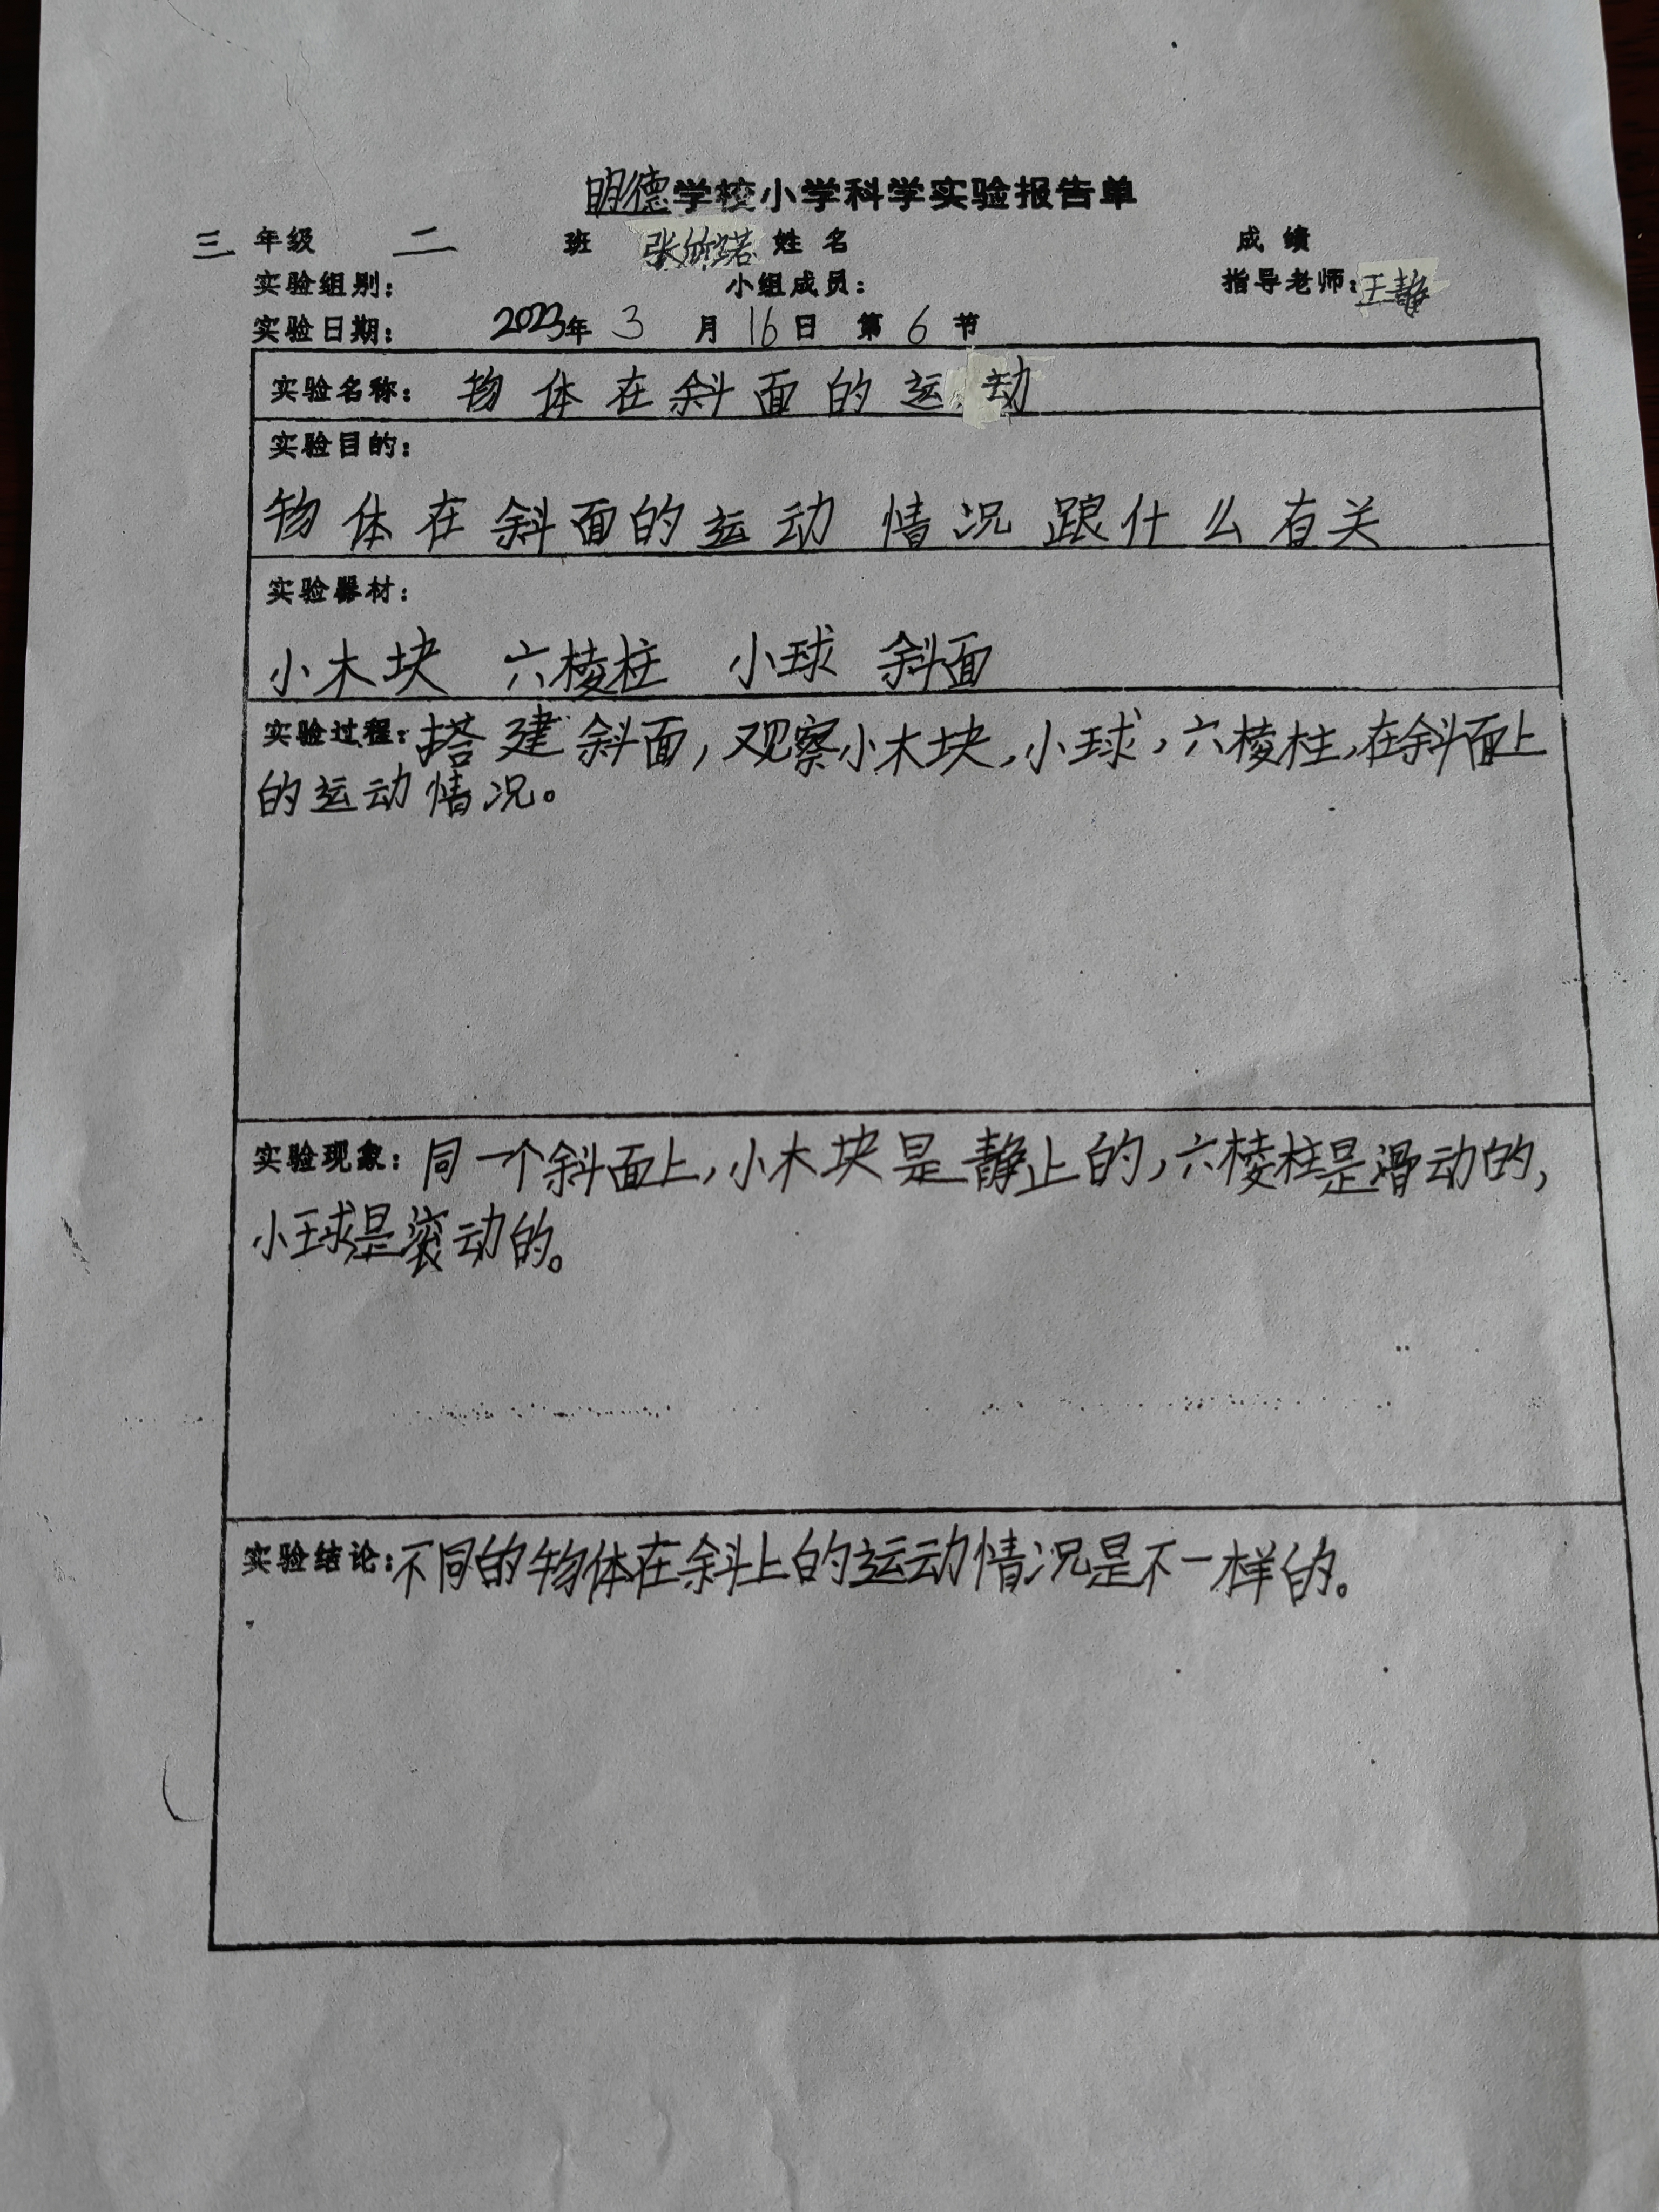 明德学校小学科学实验报告单
三 年级 二 班 张欣诺 姓名 成绩
实验组别： 小组成员： 指导老师：王静
实验日期： 2023年 3 月 16 日 第 6 节
实验名称： 物体在斜面的运动
实验目的：
物体在斜面的运动情况跟什么有关
实验器材：
小木块 六棱柱 小球 斜面
实验过程：搭建斜面，观察小木块，小球，六棱柱，在斜面上
的运动情况。
实验现象：同一个斜面上，小木块是静止的，六棱柱是滑动的，
小球是滚动的。
实验结论：不同的物体在斜上的运动情况是不一样的。